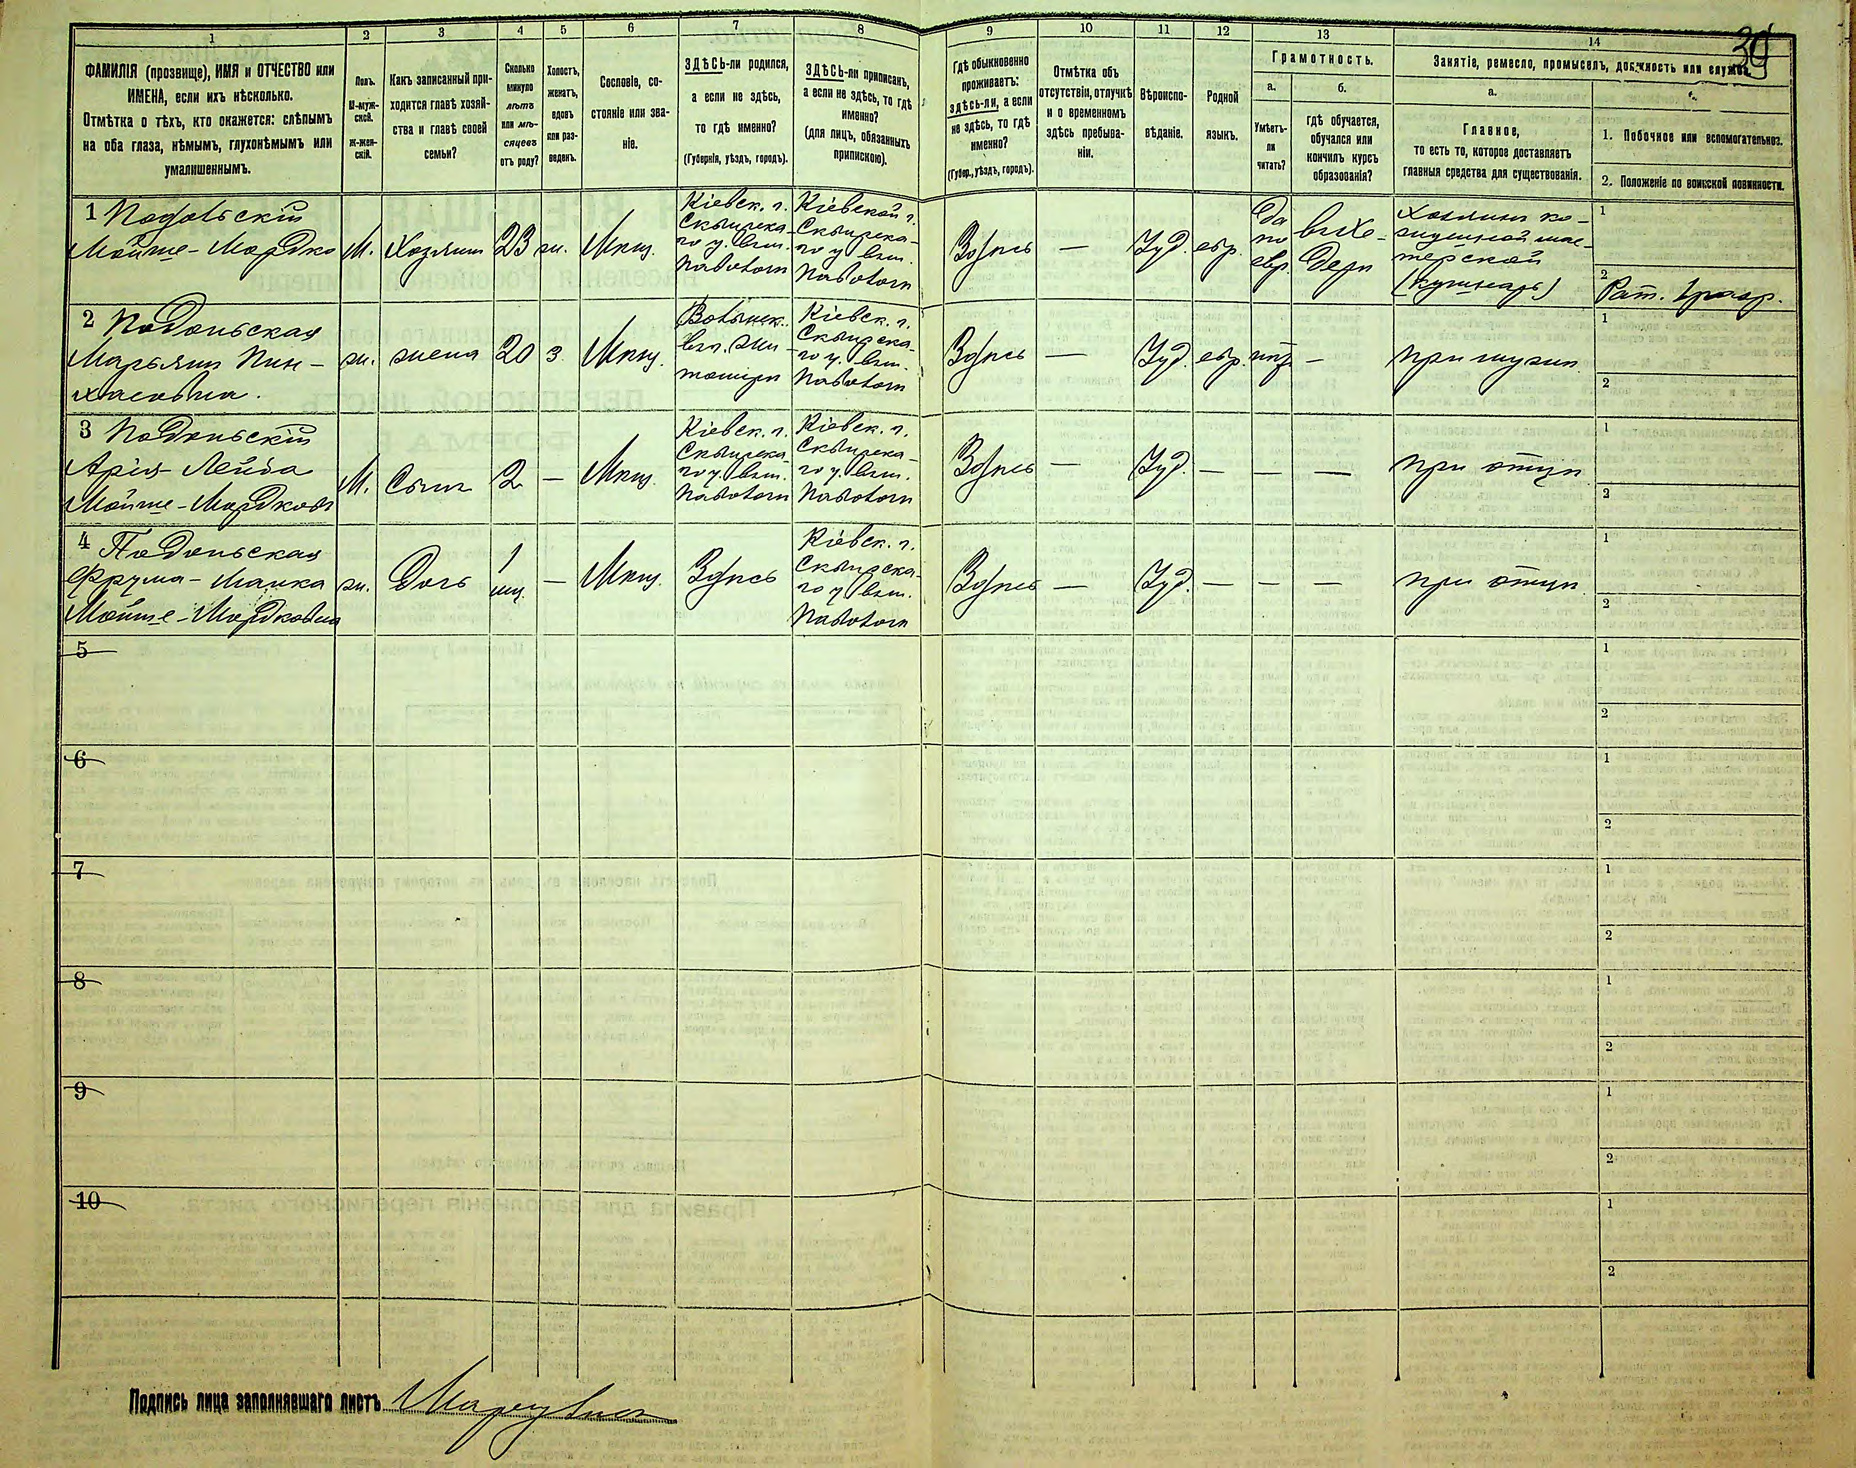 39
1 2 3 4 5 6 7 8 9 10 11 12 13 14
ФАМИЛІЯ (прозвище), ИМЯ и ОТЧЕСТВО или
ИМЕНА, если ихъ нѣсколько.
Отмѣтка о тѣхъ, кто окажется: слѣпымъ
на оба глаза, нѣмымъ, глухонѣмымъ или
умалишеннымъ.
Полъ.
М-муж-
ской.
Ж-жен-
скій.
Какъ записанный при-
ходится главѣ хозяй-
ства и главѣ своей
семьи?
Сколько
минуло
лѣтъ
или мѣ-
сяцевъ
отъ роду?
Холостъ,
женатъ,
вдовъ
или раз-
веденъ.
Сословіе, со-
стояніе или зва-
ніе.
ЗДѢСЬ-ли родился,
а если не здѣсь,
то гдѣ именно?
(Губернія, уѣздъ, городъ).
ЗДѢСЬ-ли приписанъ,
а если не здѣсь, то гдѣ
именно?
(для лицъ, обязанныхъ
припискою).
Гдѣ обыкновенно
проживаетъ:
здѣсь-ли, а если
не здѣсь, то гдѣ
именно?
(Губер., уѣздъ, городъ).
Отмѣтка объ
отсутствіи, отлучкѣ
и о временномъ
здѣсь пребыва-
ніи.
Вѣроиспо-
вѣданіе.
Родной
языкъ.
Грамотность.
а.
Умѣетъ-
ли
читать?
б.
гдѣ обучается,
обучался или
кончилъ курсъ
образованія?
Занятіе, ремесло, промыселъ, должность или служба.
а.
Главное,
то есть то, которое доставляетъ
главныя средства для существованія.
1. Побочное или вспомогательное.
2. Положеніе по воинской повинности.
1 Подольскій
Мойше-Мордко
М.
Хозяинъ
23
ж.
Мѣщ.
Кіевск. г.
Сквирска-
го у. мѣст.
Паволочи
Кіевской г.
Сквирска-
го у. мѣст.
Паволочи
Здѣсь
—
Іуд.
евр.
Да
по
евр.
въ хе-
дерѣ
Хозяинъ ко-
жушной мас-
терской
(кушнарь)
1
2
Рат. 2 разр.
2 Подольская
Марьямъ Пин-
хасовна.
ж.
жена
20
з.
Мѣщ.
Волынск.
г. Жи-
томиръ
Кіевск. г.
Сквирска-
го у. мѣст.
Паволочи
Здѣсь
—
Іуд.
евр.
нѣтъ
—
при мужѣ
1
2
3 Подольскій
Арія-Лейба
Мойше-Мордковъ
М.
Сынъ
2
—
Мѣщ.
Кіевск. г.
Сквирска-
го у. мѣст.
Паволочи
Кіевск. г.
Сквирска-
го у. мѣст.
Паволочи
Здѣсь
—
Іуд.
—
—
—
при отцѣ
1
2
4 Подольская
Фрума-Манка
Мойше-Мордковна
ж.
Дочь
1
мѣ.
—
Мѣщ.
Здѣсь
Кіевск. г.
Сквирска-
го у. мѣст.
Паволочи
Здѣсь
—
Іуд.
—
—
—
при отцѣ
1
2
5
1
2
6
1
2
7
1
2
8
1
2
9
1
2
10
1
2
Подпись лица заполнявшаго листъ